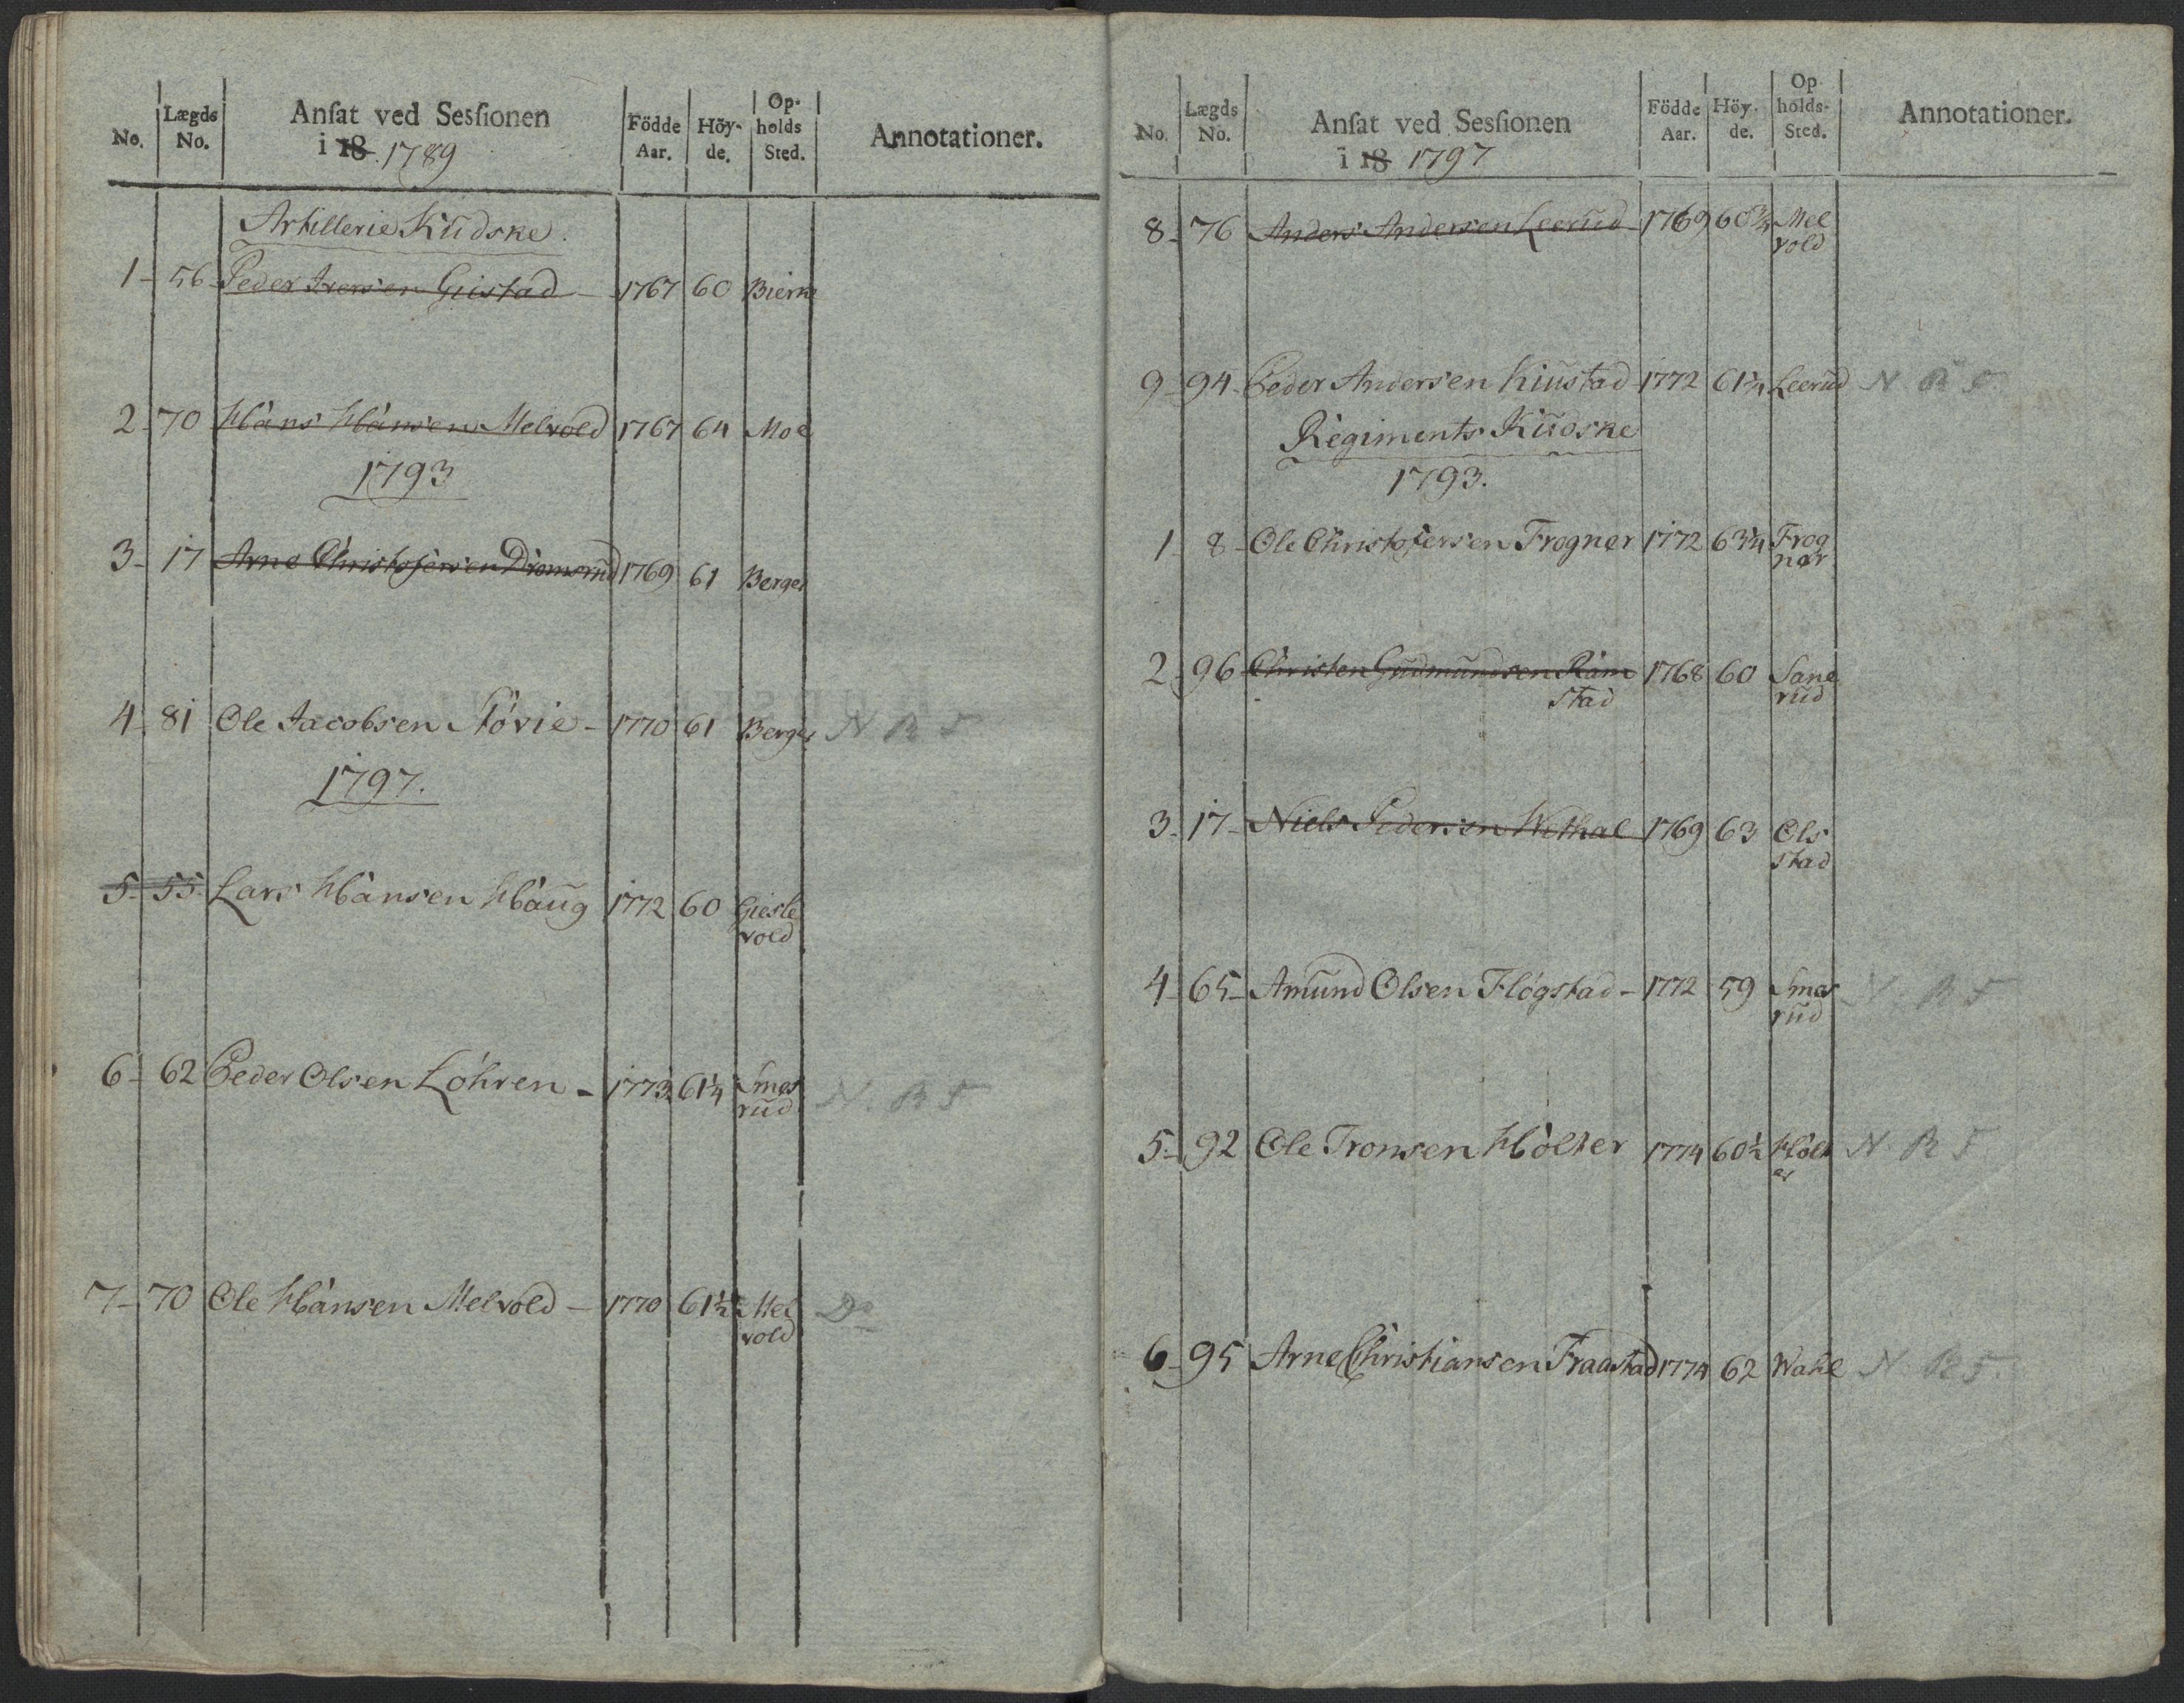 No. Lægds No. Ansat ved Sessionen i 18 1789 Födde Aar. Höy- de. Op- holds Sted. Annotationer.
Artillerie Kudske.
1 - 56 - Peder Iversen Giistad - 1767 60 Bierke
2 - 70 Hans Hansen Melvold 1767 64 Moe
1793
3 - 17 Arne Christofersen Dromsrud 1769 61 Berger
4 - 81 Ole Jacobsen Stövie - 1770 61 Berger N R 5
1797.
5 - 55 Lars Hansen Haug 1772 60 Giesle
vold
6 - 62 Peder Olsen Löhren - 1773 61¼ Smes
rud N. R 5
7 - 70 Ole Hansen Melvold - 1770 61½ Mel
vold Do
No. Lægds No. Ansat ved Sessionen i 18 1797 Födde Aar. Höy- de. Op holds- Sted. Annotationer.
8 - 76 Anders Andersen Leerud 1769 60¾ Mel
vold
9 - 94 - Peder Andersen Kiustad 1772 61¼ Leerud N R 5
Regiments Kudske
1793.
1 - 8 - Ole Christofersen Frogner 1772 63¼ Frog
ner
2 - 96 Christen Gudmundsen Ram
stad 1768 60 Sane
rud
3 - 17 - Niels Pedersen Wethal 1769 63 Ols
stad
4 - 65 - Amund Olsen Flögstad - 1772 59 Smes
rud N. R 5
5 - 92 Ole Tronsen Holter 1774 60½ Holt
er N. R 5
6 - 95 Arne Christiansen Fraastad 1774 62 Wahl N. R 5.